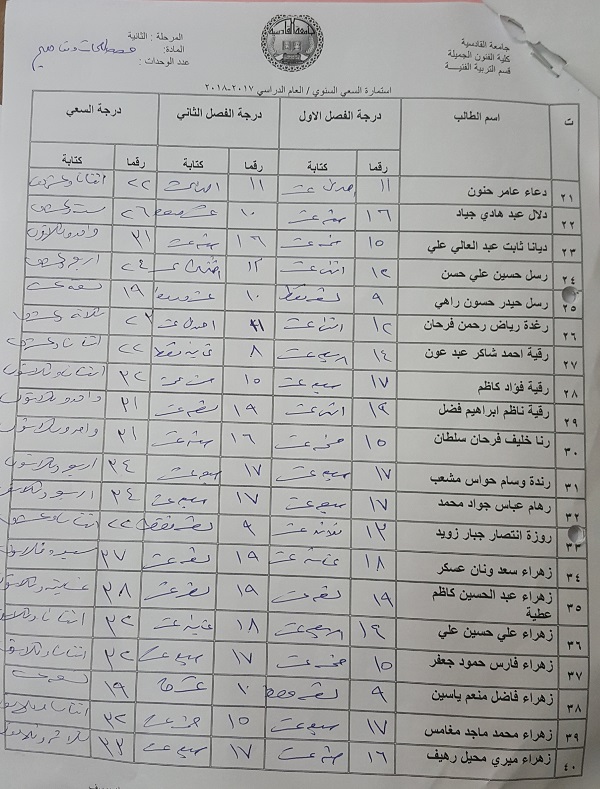 جامعة القادسية
كلية الفنون الجميلة
قسم التربية الفنيـــة
المرحلة : الثانية
المادة:
عدد الوحدات :
استمارة السعي السنوي / العام الدراسي ٢٠١٧-٢٠١٨
ت اسم الطالب درجة الفصل الاول درجة الفصل الثاني درجة السعي
رقما كتابة رقما كتابة رقما كتابة
٢١ دعاء عامر حنون ١١ احدى عشر ١١ ٢٢ اثنان وعشرون
٢٢ دلال عبد هادي جياد ١٦ ستة عشر ١٠ عشرة فقط ٢٦ ستة وعشرون
٢٣ ديانا ثابت عبد العالي علي ١٥ خمسة عشر ١٦ ستة عشر ٣١ واحد وثلاثون
٢٤ رسل حسين علي حسن ١٢ اثنى عشر ١٢ ٢٤ اربع وعشرون
٢٥ رسل حيدر حسون راهي ٩ تسعة فقط ١٠ عشرة فقط ١٩ تسعة عشر
٢٦ رغدة رياض رحمن فرحان ١٢ اثنا عشر ١١ احدى عشر ٢٣ ثلاثة وعشرون
٢٧ رقية احمد شاكر عبد عون ١٤ اربع عشر ٨ ثمانية فقط ٢٢ اثنان وعشرون
٢٨ رقية فؤاد كاظم ١٧ سبع عشر ١٥ خمسة عشر ٣٢ اثنان وثلاثون
٢٩ رقية ناظم ابراهيم فضل ١٢ اثنى عشر ١٩ تسعة عشر ٣١ واحد وثلاثون
٣٠ رنا خليف فرحان سلطان ١٥ خمسة عشر ١٦ ستة عشر ٣١ واحد وثلاثون
٣١ رندة وسام حواس مشعب ١٧ سبع عشر ١٧ سبع عشر ٣٤ اربع وثلاثون
٣٢ رهام عباس جواد محمد ١٧ سبع عشر ١٧ سبع عشر ٣٤ اربع وثلاثون
٣٣ روزة انتصار جبار زويد ١٣ ثلاثة عشر ٩ تسعة فقط ٢٢ اثنان وعشرون
٣٤ زهراء سعد ونان عسكر ١٨ ثمانية عشر ١٩ تسعة عشر ٣٧ سبع وثلاثون
٣٥ زهراء عبد الحسين كاظم ١٩ تسعة عشر ١٩ تسعة عشر ٣٨ ثمانية وثلاثون
عطية
٣٦ زهراء علي حسين علي ١٤ اربع عشر ١٨ ثمانية عشر ٣٢ اثنان وثلاثون
٣٧ زهراء فارس حمود جعفر ١٥ خمسة عشر ١٧ سبع عشر ٣٢ اثنان وثلاثون
٣٨ زهراء فاضل منعم ياسين ٩ تسعة فقط ١٠ ١٩ تسعة عشر
٣٩ زهراء محمد ماجد مغامس ١٧ سبع عشر ١٥ خمسة عشر ٣٢ اثنان وثلاثون
٤٠ زهراء ميري محيل رهيف ١٦ ستة عشر ١٧ سبع عشر ٣٣ ثلاثة وثلاثون